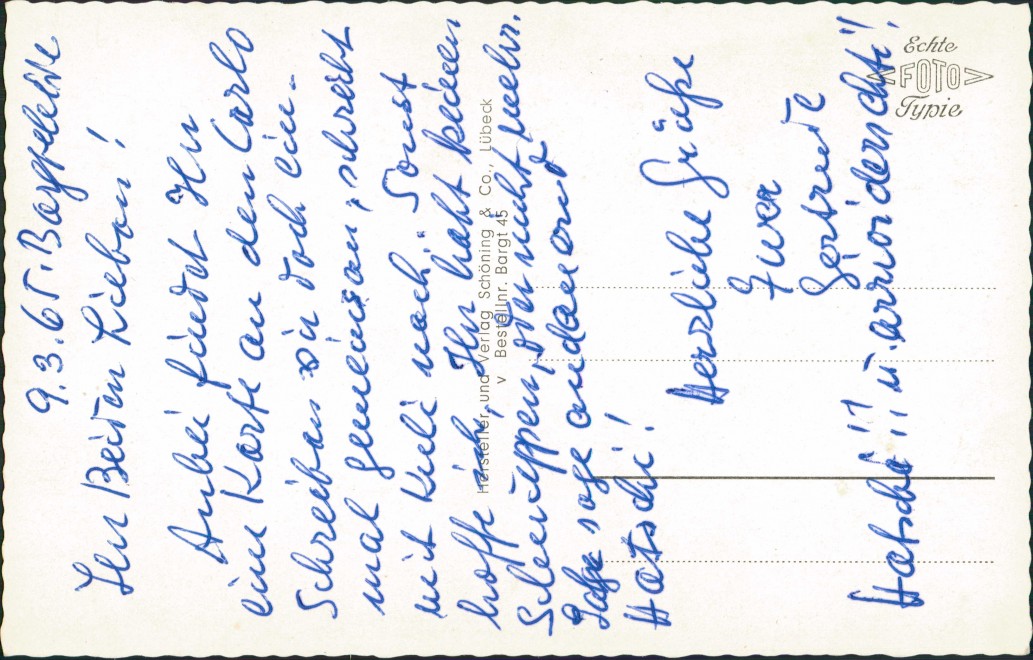 9.3.65. Bargfelde
Ihr Beiden Lieben!
Anbei findet Ihr
eine Karte an den Carlo
Schreiben wir doch ein-
mal gemeinsam, schreibt
mit Kuli nach. Sonst
hoffe ich, Ihr habt keinen
Schnuppen, oder nicht mehr.
sage andauernd
Hatschi!
Herzliche Grüße
Eure
Gertrude
Hatschi!! u.
Echte
FOTO
Typie
Hersteller und Verlag Schöning & Co., Lübeck
v Bestellnr. Bargt 45